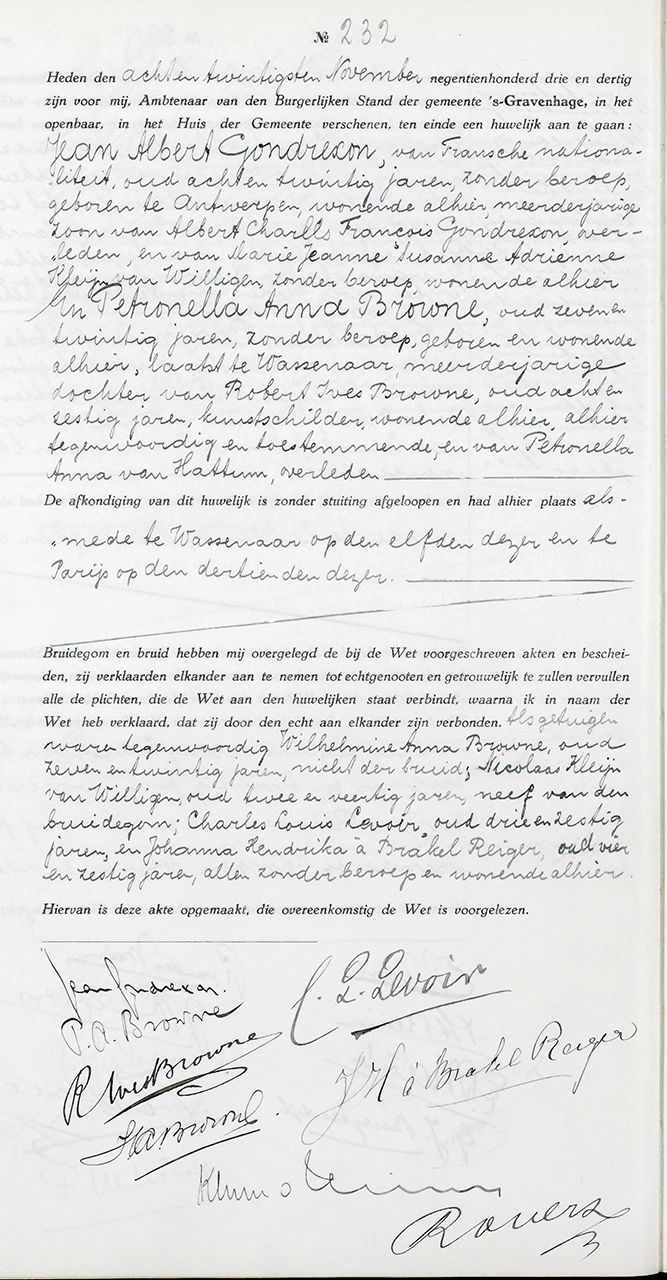 № 232
Heden den achten twintigsten November negentienhonderd drie en dertig
zijn voor mij, Ambtenaar van den Burgerlijken Stand der gemeente 's-Gravenhage, in het
openbaar, in het Huis der Gemeente verschenen, ten einde een huwelijk aan te gaan:
Jean Albert Gondrexon, van Fransche nationa-
liteit, oud acht en twintig jaren, zonder beroep,
geboren te Antwerpen, wonende alhier, meerderjarige
zoon van Albert Charlls François Gondrexon, over-
leden, en van Marie Jeanne Susanne Adrienne
Kleijn van Willigen, zonder beroep, wonende alhier
En Petronella Anna Browne, oud zeven en
twintig jaren, zonder beroep, geboren en wonende
alhier, laatst te Wassenaar, meerderjarige
dochter van Robert Ives Browne, oud acht en
zestig jaren, kunstschilder, wonende alhier, alhier
tegenwoordig en toestemmende, en van Petronella
Anna van Hattum, overleden
De afkondiging van dit huwelijk is zonder stuiting afgeloopen en had alhier plaats als-
mede te Wassenaar op den elfden dezer en te
Parijs op den dertienden dezer.
Bruidegom en bruid hebben mij overgelegd de bij de Wet voorgeschreven akten en beschei-
den, zij verklaarden elkander aan te nemen tot echtgenooten en getrouwelijk te zullen vervullen
alle de plichten, die de Wet aan den huwelijken staat verbindt, waarna ik in naam der
Wet heb verklaard, dat zij door den echt aan elkander zijn verbonden. Als getuigen
waren tegenwoordig Wilhelmine Anna Browne, oud
zeven en twintig jaren, nicht der bruid; Nicolaas Kleijn
van Willigen, oud twee en veertig jaren, neef van den
bruidegom; Charles Louis Levoir, oud drie en zestig
jaren, en Johanna Hendrika à Brakel Reiger, oud vier
en zestig jaren, allen zonder beroep en wonende alhier.
Hiervan is deze akte opgemaakt, die overeenkomstig de Wet is voorgelezen.
Jean Gondrexon.
C. L. Levoir
P. A. Browne
R Ives Browne
J H à Brakel Reiger
W.A. Browne.
Rovers